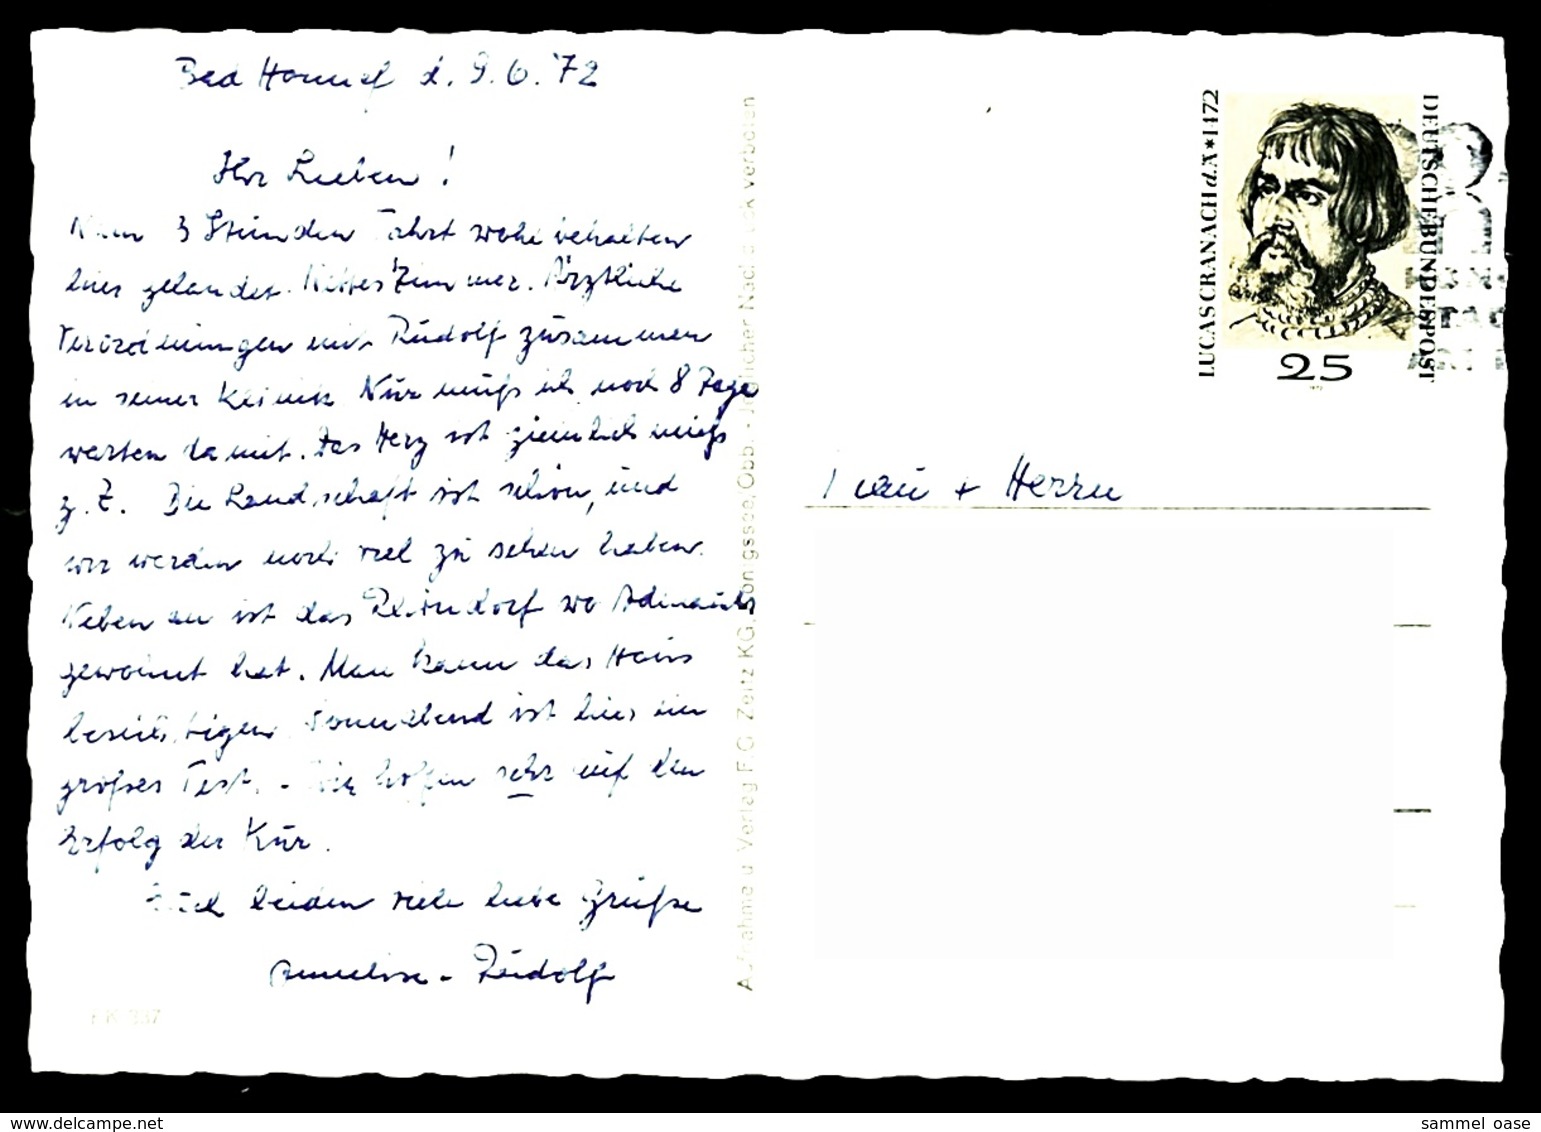 Bad Honnef d. 9.6.'72
Ihr Lieben!
Nach 3 Stunden Fahrt wohlbehalten
hier gelandet. Nettes Zimmer. Ärztliche
Verordnungen mit Rudolf zusammen
in seiner Klinik. Nur muß ich noch 8 Tage
warten damit. Das Herz ist ziemlich mieß
z. Z. Die Landschaft ist schön, und
wir werden noch viel zu sehen haben.
Nebenan ist das Rhöndorf wo Adenauer
gewohnt hat. Man kann das Haus
besichtigen. Sonnabend ist hier ein
großes Fest. - Wir hoffen sehr auf den
Erfolg der Kur.
Euch beiden viele liebe Grüße
Annelise - Rudolf
FK 337
Aufnahme u. Verlag F. G. Zeitz KG, Königssee/Obb. - Jeglicher Nachdruck verboten
LUCAS CRANACH d.Ä * 1472
DEUTSCHE BUNDESPOST
25
Frau + Herrn
sammel_oase